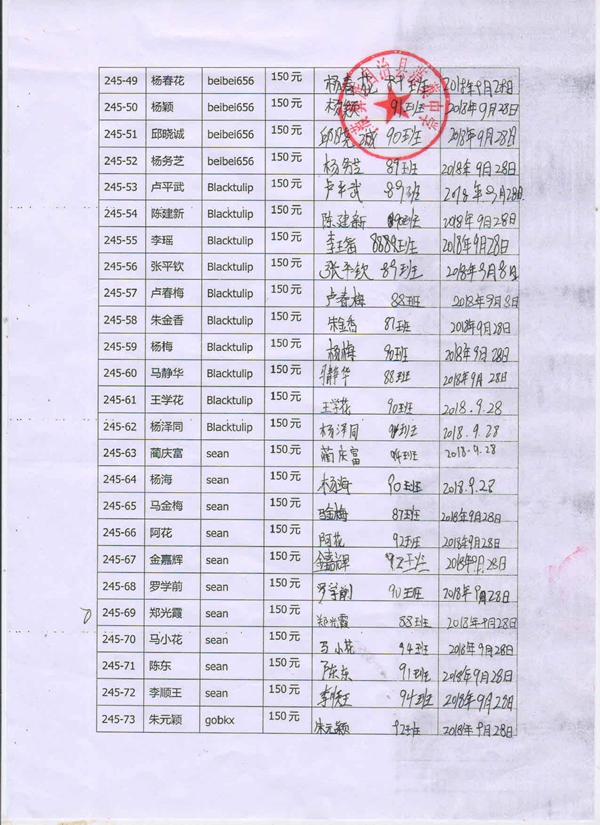 245-49 杨春花 beibei656 150元 杨春花 89班 2018年9月28日
245-50 杨颖 beibei656 150元 杨颖 91班 2018年9月28日
245-51 邱晓诚 beibei656 150元 邱晓诚 90班 2018年9月28日
245-52 杨务芝 beibei656 150元 杨务芝 89班 2018年9月28日
245-53 卢平武 Blacktulip 150元 卢平武 89班 2018年9月28日
245-54 陈建新 Blacktulip 150元 陈建新 班 2018年9月28日
245-55 李瑶 Blacktulip 150元 李瑶 班 2018年9月28日
245-56 张平钦 Blacktulip 150元 张平钦 89班 2018年9月8日
245-57 卢春梅 Blacktulip 150元 卢春梅 88班 2018年9月8日
245-58 朱金香 Blacktulip 150元 朱金香 87班 2018年9月28日
245-59 杨梅 Blacktulip 150元 杨梅 90班 2018年9月28日
245-60 马静华 Blacktulip 150元 马静华 88班 2018年9月28日
245-61 王学花 Blacktulip 150元 王学花 90班 2018.9.28
245-62 杨泽同 Blacktulip 150元 杨泽同 班 2018.9.28
245-63 蔺庆富 sean 150元 蔺庆富 94班 2018.9.28
245-64 杨海 sean 150元 杨海 90班 2018.9.28
245-65 马金梅 sean 150元 马金梅 87班 2018年9月28日
245-66 阿花 sean 150元 阿花 92班 2018年9月28日
245-67 金嘉辉 sean 150元 金嘉辉 92班 2018年9月28日
245-68 罗学前 sean 150元 罗学前 90班 2018年9月28日
245-69 郑光霞 sean 150元 郑光霞 88班 2018年9月28日
245-70 马小花 sean 150元 马小花 94班 2018年9月28日
245-71 陈东 sean 150元 陈东 91班 2018年9月28日
245-72 李顺王 sean 150元 李顺王 94班 2018年9月28日
245-73 朱元颖 gobkx 150元 朱元颖 92班 2018年9月28日